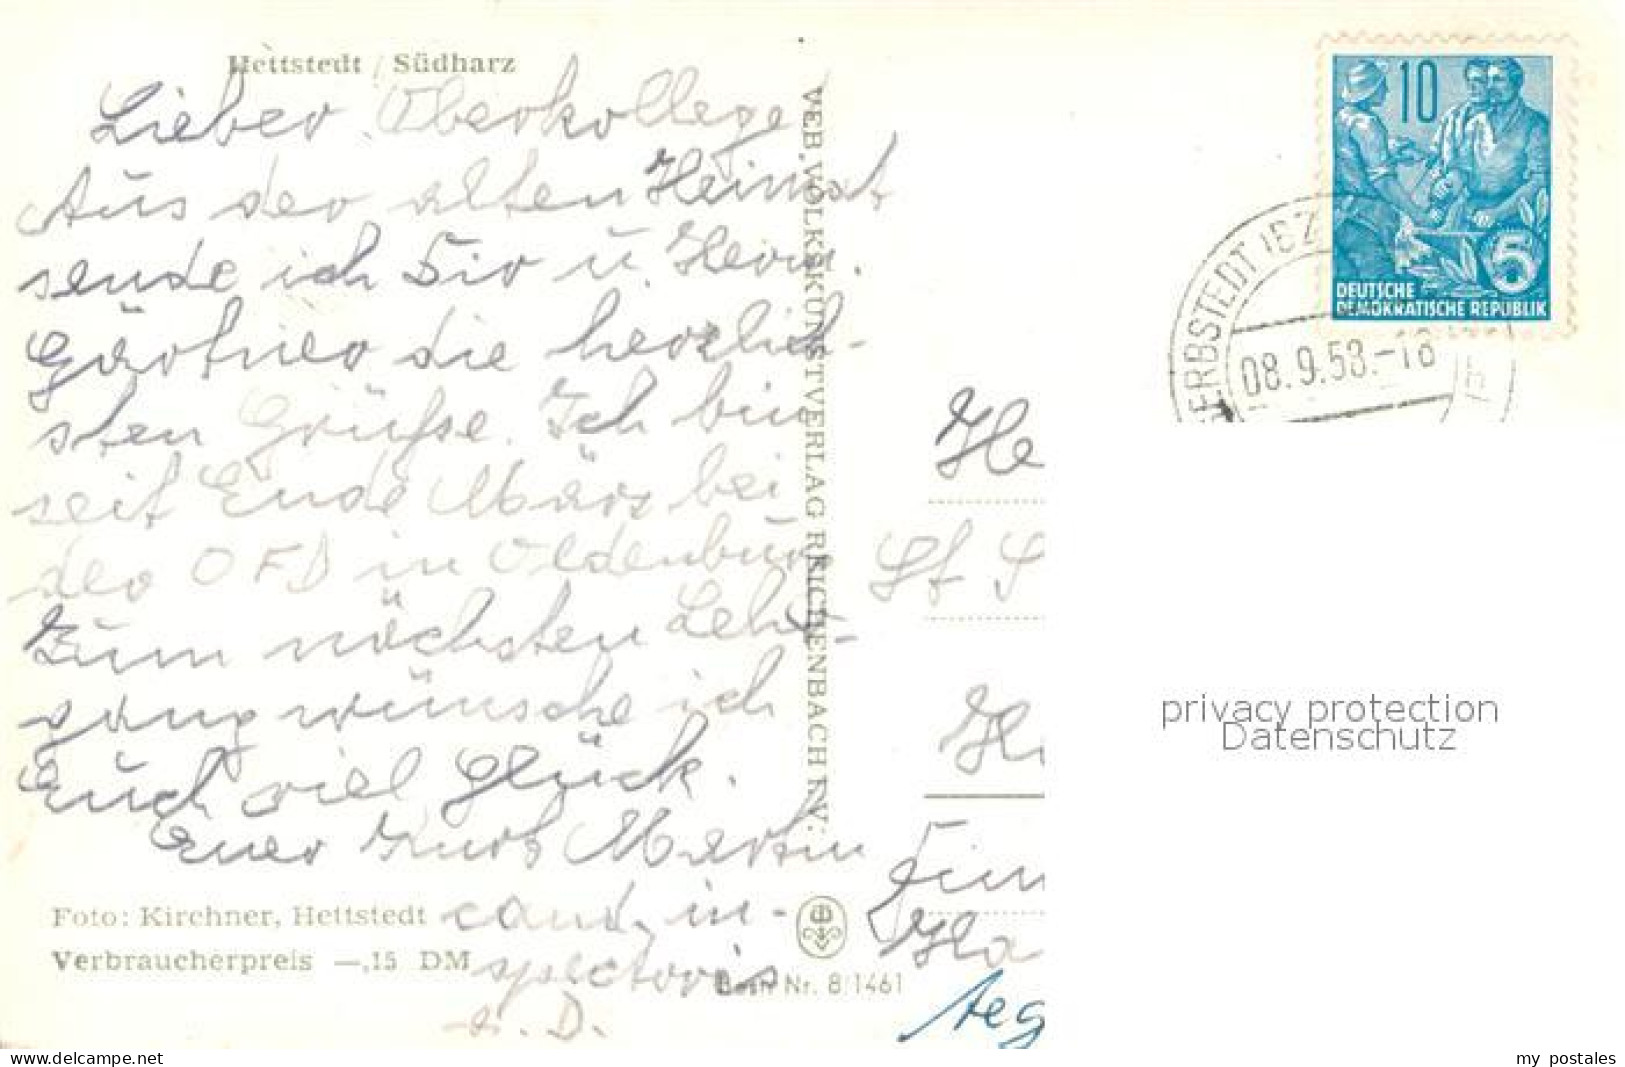 Hettstedt / Südharz
Lieber Oberkollege
Aus der alten Heimat
sende ich Dir u. Herrn.
Gärtner die herzlich-
sten Grüße. Ich bin
seit Ende März bei
der OFD in Oldenburg
Zum nächsten Lehr-
gang wünsche ich
Euch viel Glück.
Euer Kurt Martin
cand. in-
spectoris
a. D.
Foto: Kirchner, Hettstedt
Verbraucherpreis —,15 DM
VEB VOLKSKUNSTVERLAG REICHENBACH I V:
Best. Nr. 8/1461
10
5
DEUTSCHE
DEMOKRATISCHE REPUBLIK
GERBSTEDT (BZ
08.9.53.-18
He
Hi
Ha
privacy protection
Datenschutz
www.delcampe.net
my postales